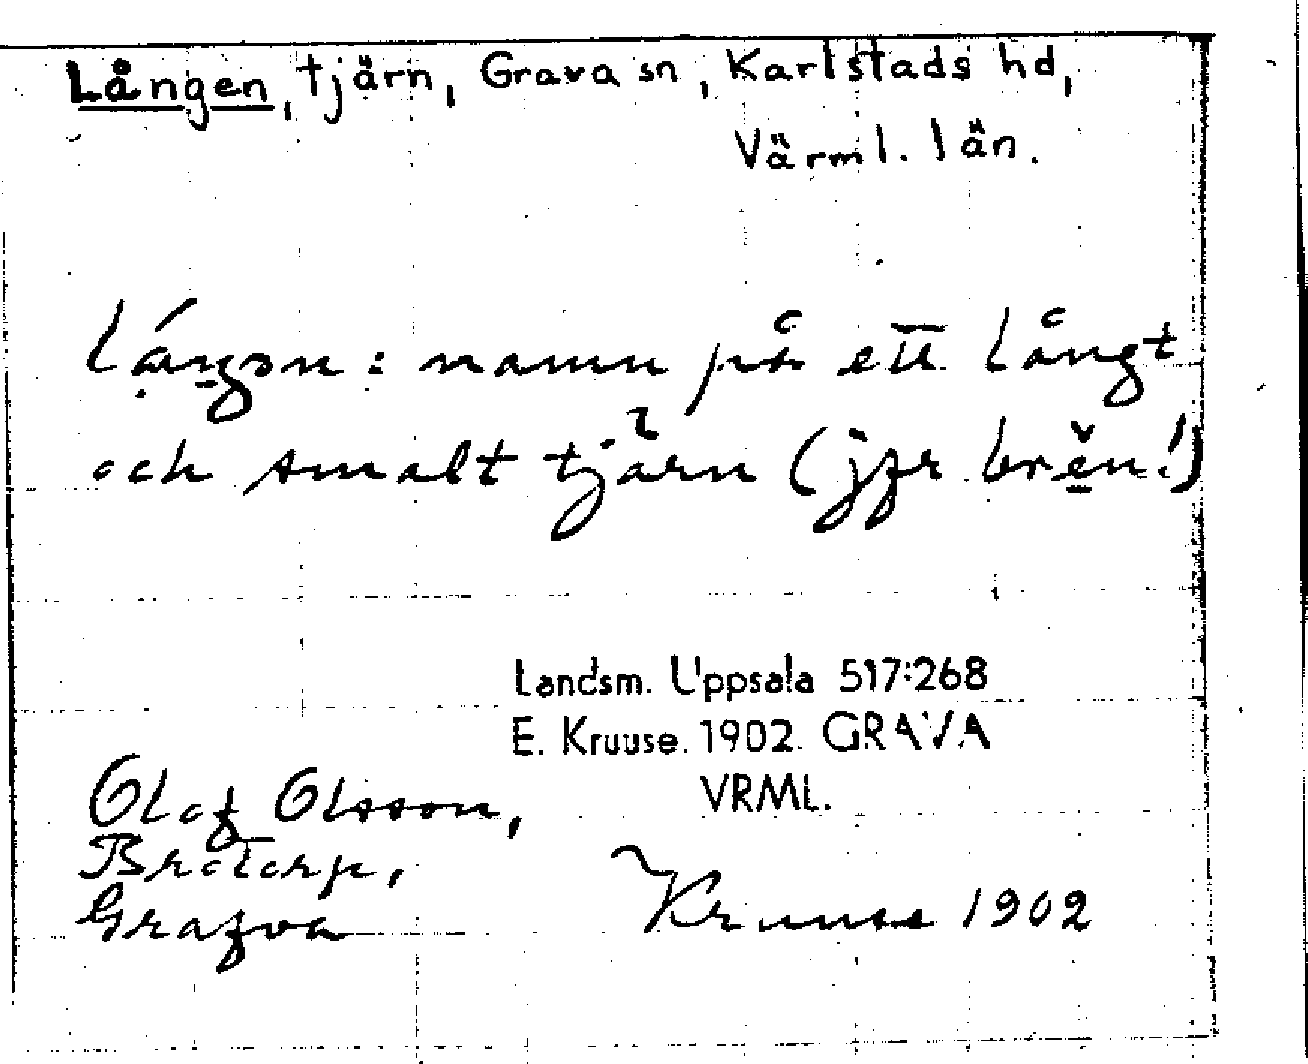 Lången, tjärn, Grava sn, Karlstads hd,
Värml. län.
namn på ett långt
och smalt tjärn (jfr
Landsm. Uppsala 517:268
E. Kruuse. 1902. GRAVA
VRML.
Olof Olsson,
Brotorp,
Grafva
Kruuse 1902